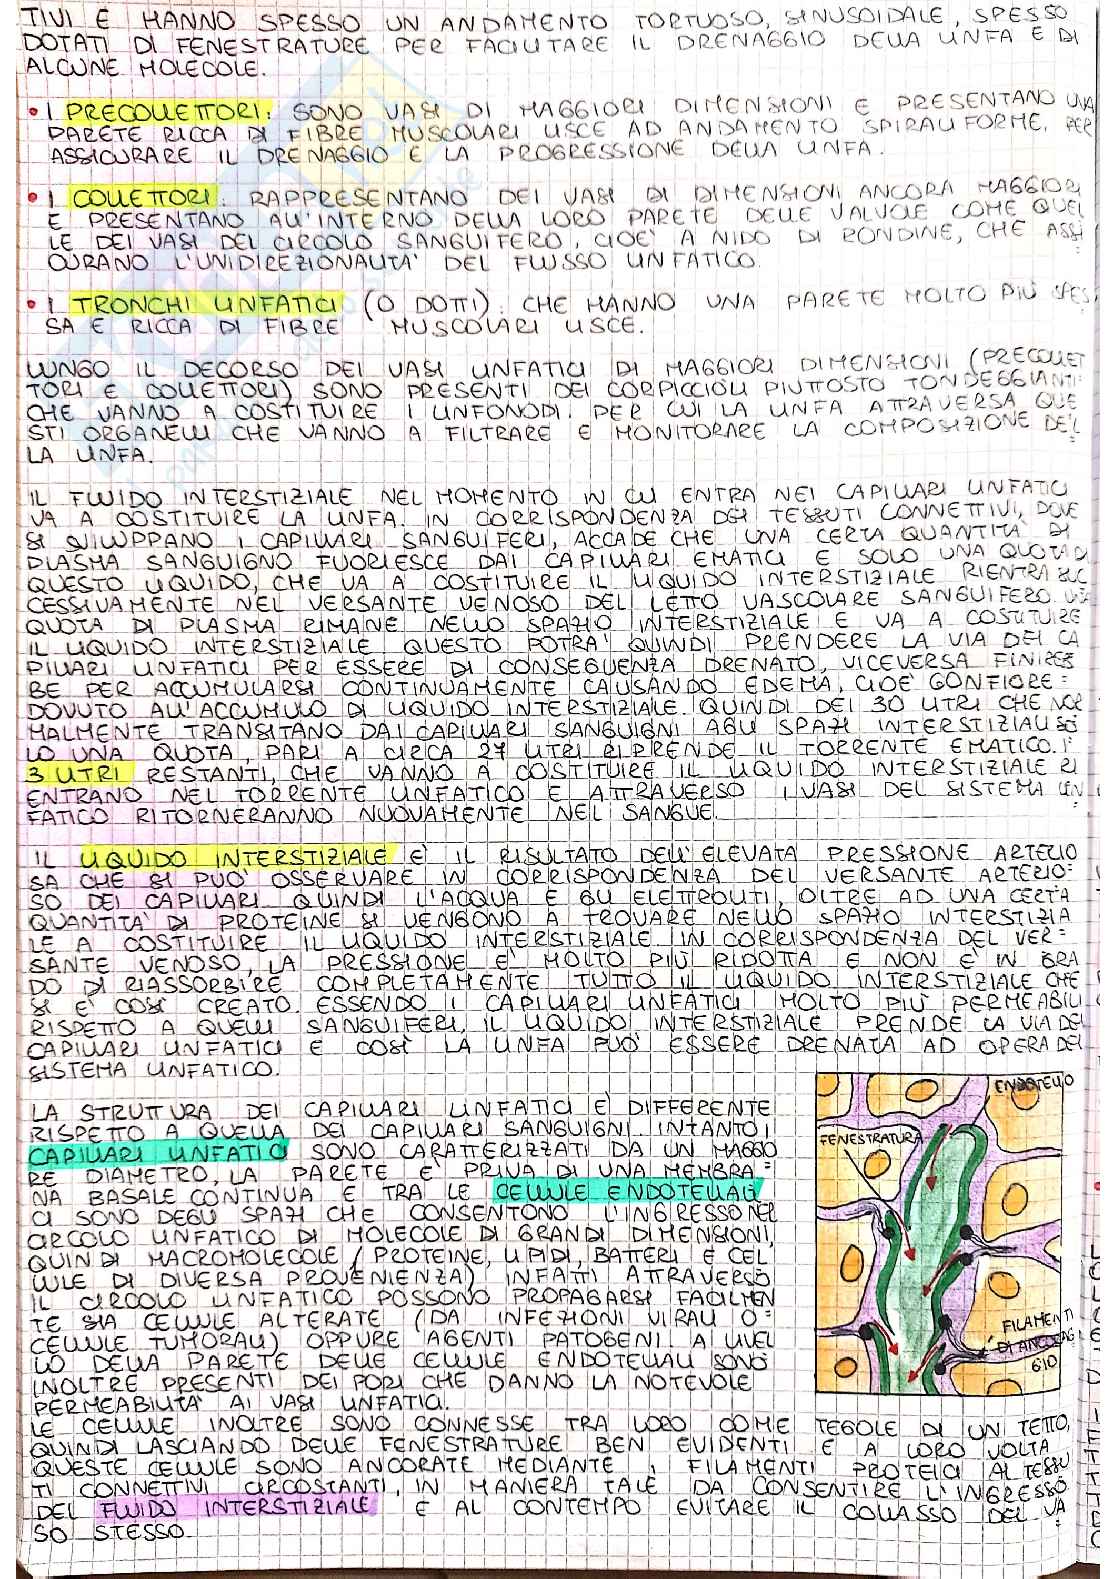 TIVI E HANNO SPESSO UN ANDAMENTO TORTUOSO, SINUSOIDALE, SPESSO
DOTATI DI FENESTRATURE PER FACILITARE IL DRENAGGIO DELLA LINFA E DI
ALCUNE MOLECOLE.
• I PRECOLLETTORI: SONO VASI DI MAGGIORI DIMENSIONI E PRESENTANO UNA
PARETE RICCA DI FIBRE MUSCOLARI LISCE AD ANDAMENTO SPIRALIFORME, PER
ASSICURARE IL DRENAGGIO E LA PROGRESSIONE DELLA LINFA.
• I COLLETTORI: RAPPRESENTANO DEI VASI DI DIMENSIONI ANCORA MAGGIORI
E PRESENTANO ALL'INTERNO DELLA LORO PARETE DELLE VALVOLE COME QUEL
LE DEI VASI DEL CIRCOLO SANGUIFERO, CIOÈ A NIDO DI RONDINE, CHE ASSI
CURANO L'UNIDIREZIONALITÀ DEL FLUSSO LINFATICO.
• I TRONCHI LINFATICI (O DOTTI): CHE HANNO UNA PARETE MOLTO PIÙ SPES
SA E RICCA DI FIBRE MUSCOLARI LISCE.
LUNGO IL DECORSO DEI VASI LINFATICI DI MAGGIORI DIMENSIONI (PRECOLLET
TORI E COLLETTORI) SONO PRESENTI DEI CORPICCIOLI PIUTTOSTO TONDEGGIANTI
CHE VANNO A COSTITUIRE I LINFONODI. PER CUI LA LINFA ATTRAVERSA QUE
STI ORGANELLI CHE VANNO A FILTRARE E MONITORARE LA COMPOSIZIONE DEL
LA LINFA.
IL FLUIDO INTERSTIZIALE NEL MOMENTO IN CUI ENTRA NEI CAPILLARI LINFATICI
VA A COSTITUIRE LA LINFA. IN CORRISPONDENZA DEI TESSUTI CONNETTIVI, DOVE
SI SVILUPPANO I CAPILLARI SANGUIFERI, ACCADE CHE UNA CERTA QUANTITÀ DI
PLASMA SANGUIGNO FUORIESCE DAI CAPILLARI EMATICI E SOLO UNA QUOTA DI
QUESTO LIQUIDO, CHE VA A COSTITUIRE IL LIQUIDO INTERSTIZIALE RIENTRA SUC
CESSIVAMENTE NEL VERSANTE VENOSO DEL LETTO VASCOLARE SANGUIFERO.
QUOTA DI PLASMA RIMANE NELLO SPAZIO INTERSTIZIALE E VA A COSTITUIRE
IL LIQUIDO INTERSTIZIALE QUESTO POTRÀ QUINDI PRENDERE LA VIA DEI CA
PILLARI LINFATICI PER ESSERE DI CONSEGUENZA DRENATO, VICEVERSA FINIREB
BE PER ACCUMULARSI CONTINUAMENTE CAUSANDO EDEMA, CIOÈ GONFIORE
DOVUTO ALL'ACCUMULO DI LIQUIDO INTERSTIZIALE. QUINDI DEI 30 LITRI CHE NOR
MALMENTE TRANSITANO DAI CAPILLARI SANGUIGNI AGLI SPAZI INTERSTIZIALI SO
LO UNA QUOTA, PARI A CIRCA 27 LITRI RIPRENDE IL TORRENTE EMATICO. I
3 LITRI RESTANTI, CHE VANNO A COSTITUIRE IL LIQUIDO INTERSTIZIALE RI
ENTRANO NEL TORRENTE LINFATICO E ATTRAVERSO I VASI DEL SISTEMA LIN
FATICO RITORNERANNO NUOVAMENTE NEL SANGUE.
IL LIQUIDO INTERSTIZIALE È IL RISULTATO DELL'ELEVATA PRESSIONE ARTERIO
SA CHE SI PUÒ OSSERVARE IN CORRISPONDENZA DEL VERSANTE ARTERIO=
SO DEI CAPILLARI QUINDI L'ACQUA E GLI ELETTROLITI, OLTRE AD UNA CERTA
QUANTITÀ DI PROTEINE SI VENGONO A TROVARE NELLO SPAZIO INTERSTIZIA
LE A COSTITUIRE IL LIQUIDO INTERSTIZIALE IN CORRISPONDENZA DEL VER=
SANTE VENOSO, LA PRESSIONE È MOLTO PIÙ RIDOTTA E NON È IN GRA
DO DI RIASSORBIRE COMPLETAMENTE TUTTO IL LIQUIDO INTERSTIZIALE CHE
SI È COSÌ CREATO. ESSENDO I CAPILLARI LINFATICI MOLTO PIÙ PERMEABILI
RISPETTO A QUELLI SANGUIFERI, IL LIQUIDO INTERSTIZIALE PRENDE LA VIA DEI
CAPILLARI LINFATICI E COSÌ LA LINFA PUÒ ESSERE DRENATA AD OPERA DEL
SISTEMA LINFATICO.
LA STRUTTURA DEI CAPILLARI LINFATICI È DIFFERENTE
RISPETTO A QUELLA DEI CAPILLARI SANGUIGNI. INTANTO, I
CAPILLARI LINFATICI SONO CARATTERIZZATI DA UN MAGGIO
RE DIAMETRO, LA PARETE È PRIVA DI UNA MEMBRA=
NA BASALE CONTINUA E TRA LE CELLULE ENDOTELIALI
CI SONO DEGLI SPAZI CHE CONSENTONO L'INGRESSO NEL
CIRCOLO LINFATICO DI MOLECOLE DI GRANDI DIMENSIONI,
QUINDI MACROMOLECOLE (PROTEINE, LIPIDI, BATTERI E CEL
LULE DI DIVERSA PROVENIENZA) INFATTI ATTRAVERSO
IL CIRCOLO LINFATICO POSSONO PROPAGARSI FACILMEN
TE SIA CELLULE ALTERATE (DA INFEZIONI VIRALI O=
CELLULE TUMORALI) OPPURE AGENTI PATOGENI A LIVEL
LO DELLA PARETE DELLE CELLULE ENDOTELIALI SONO
INOLTRE PRESENTI DEI PORI CHE DANNO LA NOTEVOLE
PERMEABILITÀ AI VASI LINFATICI.
LE CELLULE INOLTRE SONO CONNESSE TRA LORO COME TEGOLE DI UN TETTO,
QUINDI LASCIANDO DELLE FENESTRATURE BEN EVIDENTI E A LORO VOLTA
QUESTE CELLULE SONO ANCORATE MEDIANTE I FILAMENTI PROTEICI AI TESSU
TI CONNETTIVI CIRCOSTANTI, IN MANIERA TALE DA CONSENTIRE L'INGRESSO
DEL FLUIDO INTERSTIZIALE E AL CONTEMPO EVITARE IL COLLASSO DEL VA
SO STESSO.
ENDOTELIO
FENESTRATURA
FILAMENTI
DI ANCORAG
GIO